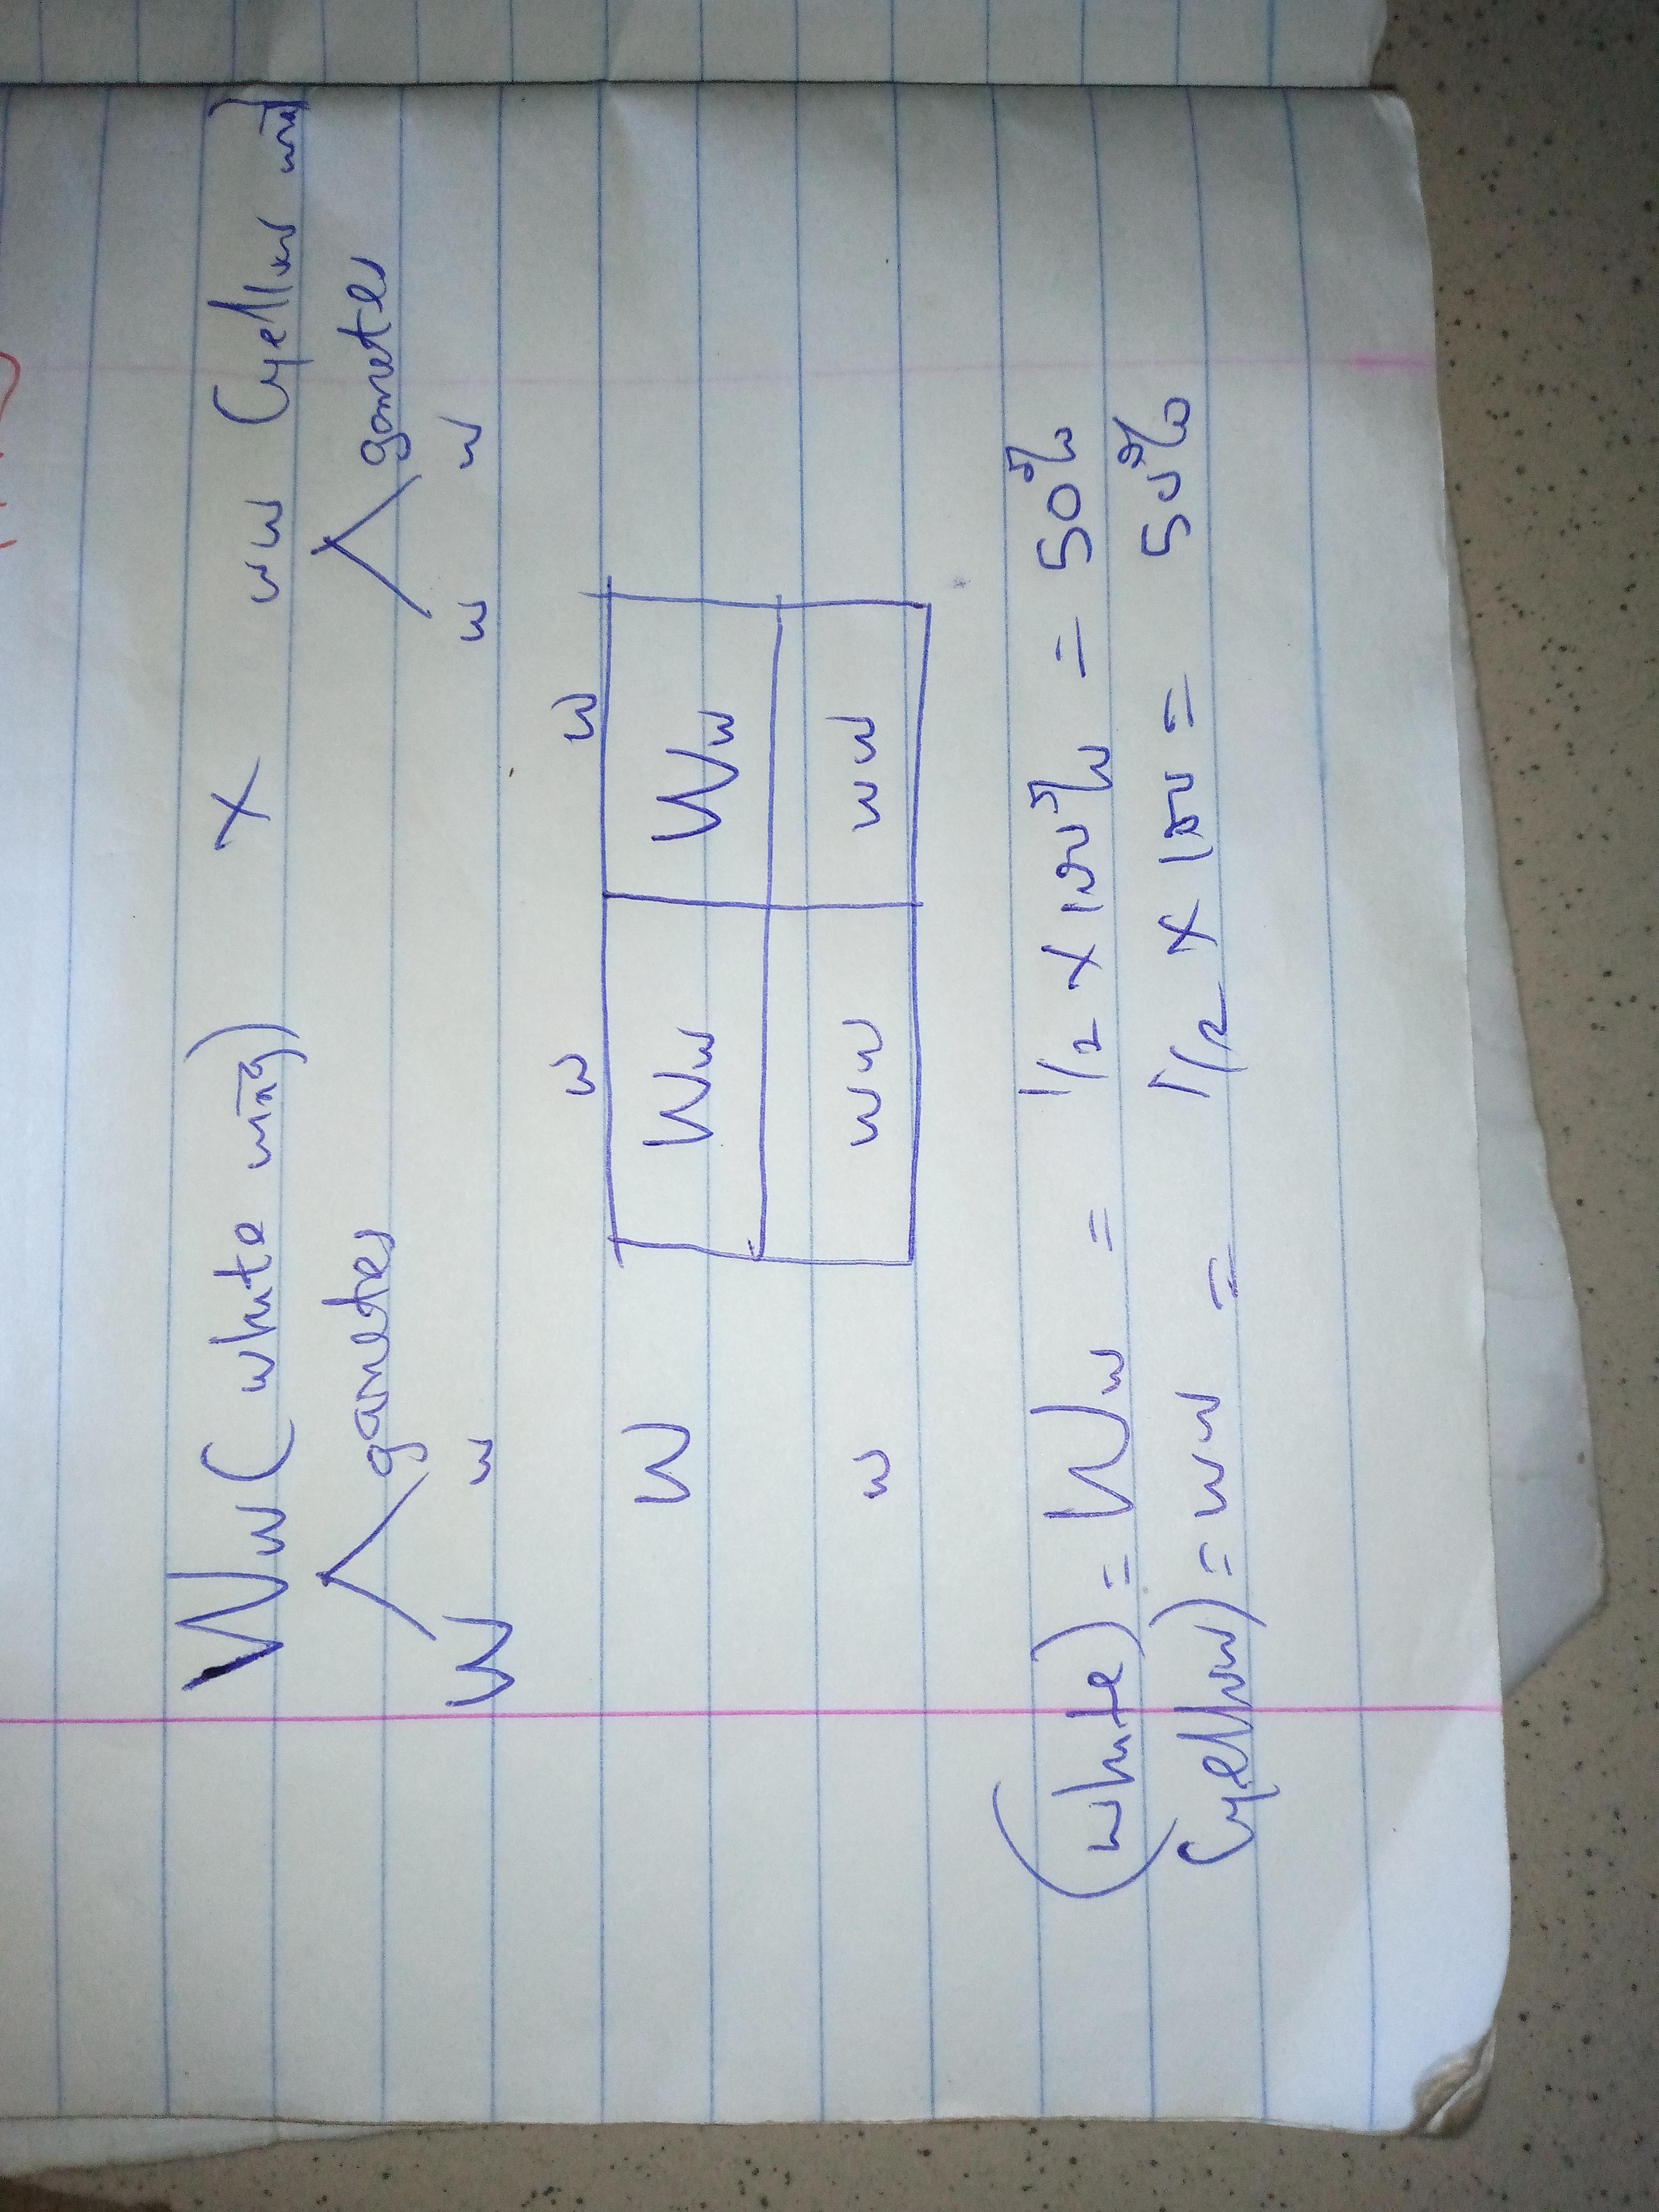 Ww (white wing) x ww (yellow wing)
gametes gametes
W w w w
w w
W Ww Ww
w ww ww
(white) = Ww = 1/2 x 100% = 50%
(yellow) = ww = 1/2 x 100 = 50%